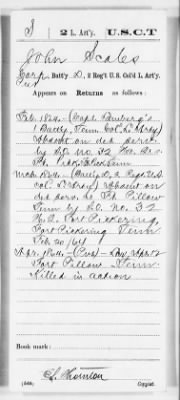 S | 2 L. Art'y. | U.S.C.T
John Scales
Corp, Batt'y D, 2 Reg't U.S. Col'd L. Art'y.
Appears on Returns as follows:
Feby. 1864, (Capt. Lamberg's
1 Batty, Tenn Col. L. Arty)
Absent on det. service
by S.O. no. 32
Ft. Pickering Tenn
Batty D, 2 Regt U.S.
Col. L. Arty) Absent on
det. serv. to Ft. Pillow
Tenn by S.O. no. 32
H.Q. Fort Pickering,
Fort Pickering Tenn
Feb 20/64
Apr. 1864 (Pvt)
Fort Pillow Tenn.
Killed in action
Book mark:
(546) Copyist.